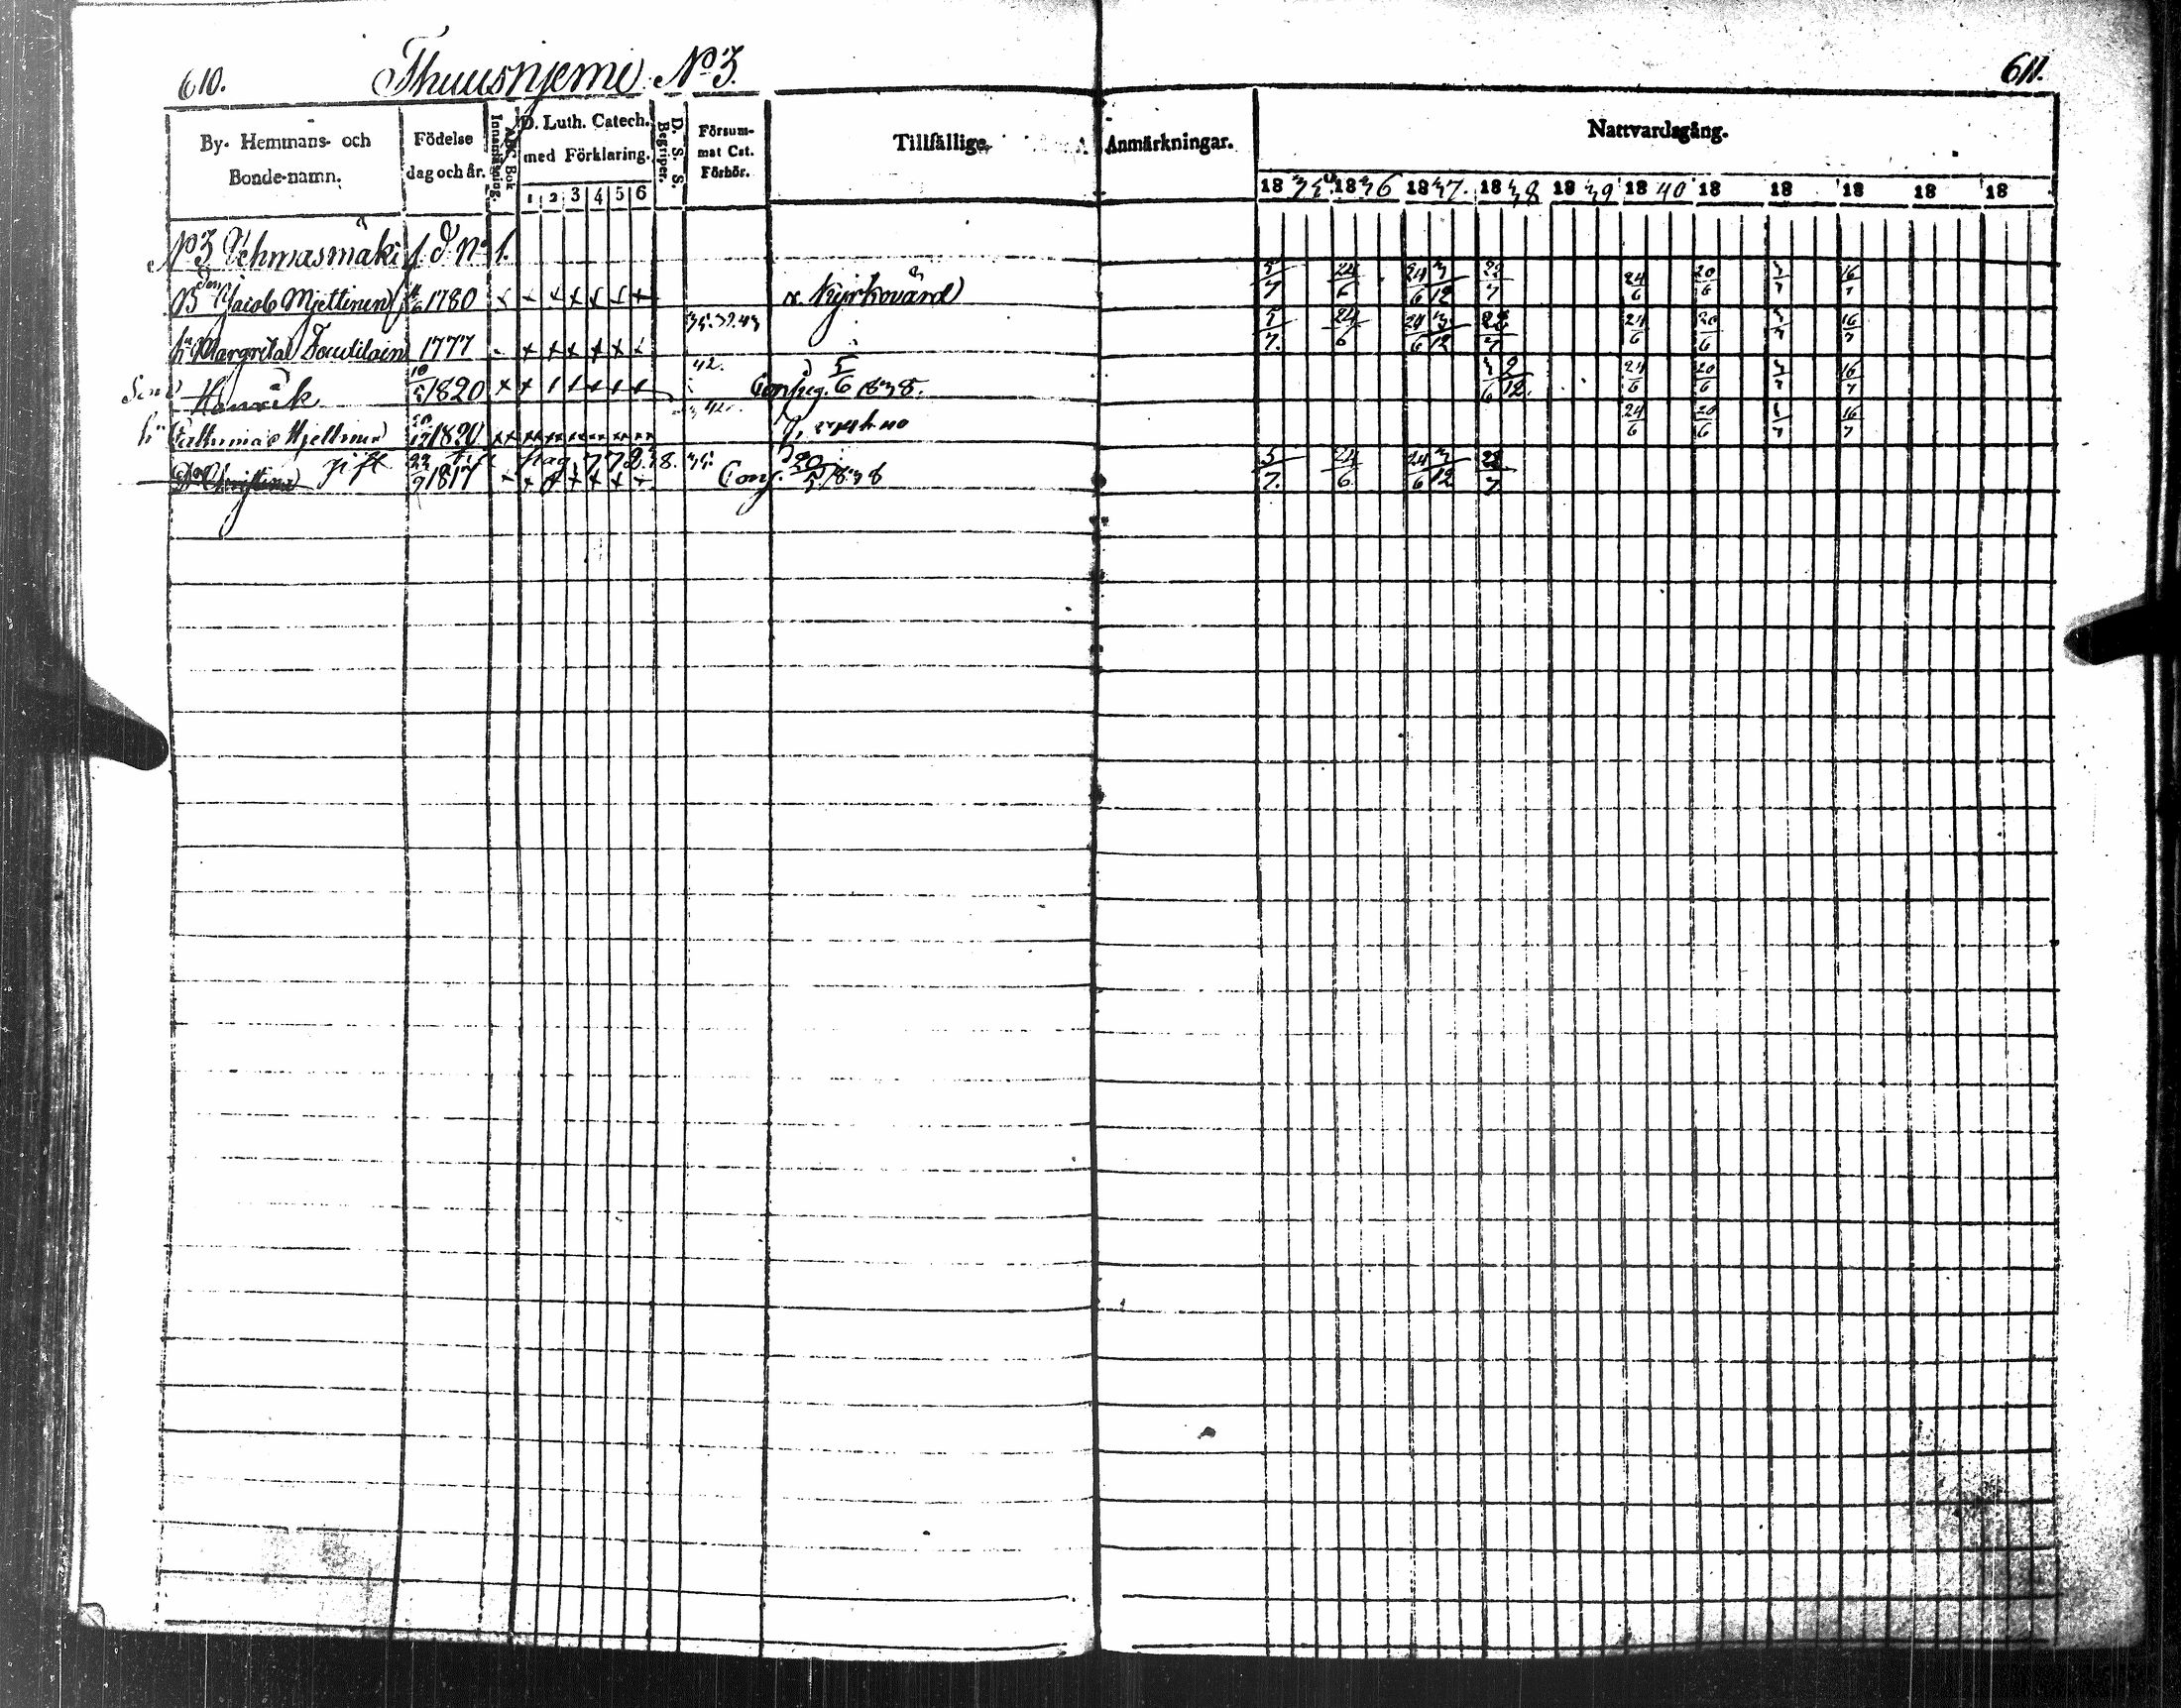 610.
Thuusnjemi No 3.
611.
By- Hemmans- och Bonde-namn.
Födelse dag och år.
ABC Bok Innanläsning.
D. Luth. Catech. med Förklaring.
1 2 3 4 5 6
D. S. S. Begriper.
Försum- mat Cat. Förhör.
Tillfällige
Anmärkningar.
Nattvardsgång.
18 35 18 36 18 37. 18 38 18 39 18 40 18 18 18 18 18
No 3 Vehmasmäki 1 d No 1.
Bden Jacob Mjettinen 1780 x Kyrkovärd 5/7 24/6 24/6 3/12 22/7 24/6 20/6 3/7 16/7
h Margreta Toutilain 1777 35. 39. 43 5/7. 24/6 24/6 3/12 22/7 24/6 20/6 3/7 16/7
Son Henrik 1820 42. 5/6 1838. 3/6 2/12. 24/6 20/6 3/7 16/7
hu Mjettinen 20/12 1820 42. 24/6 20/6 16/7
Dr Christina gift 22/9 1817 t. pag 772. 38. 35. Conf. 20/5 1836 5/7. 24/6 24/6 3/12 22/7